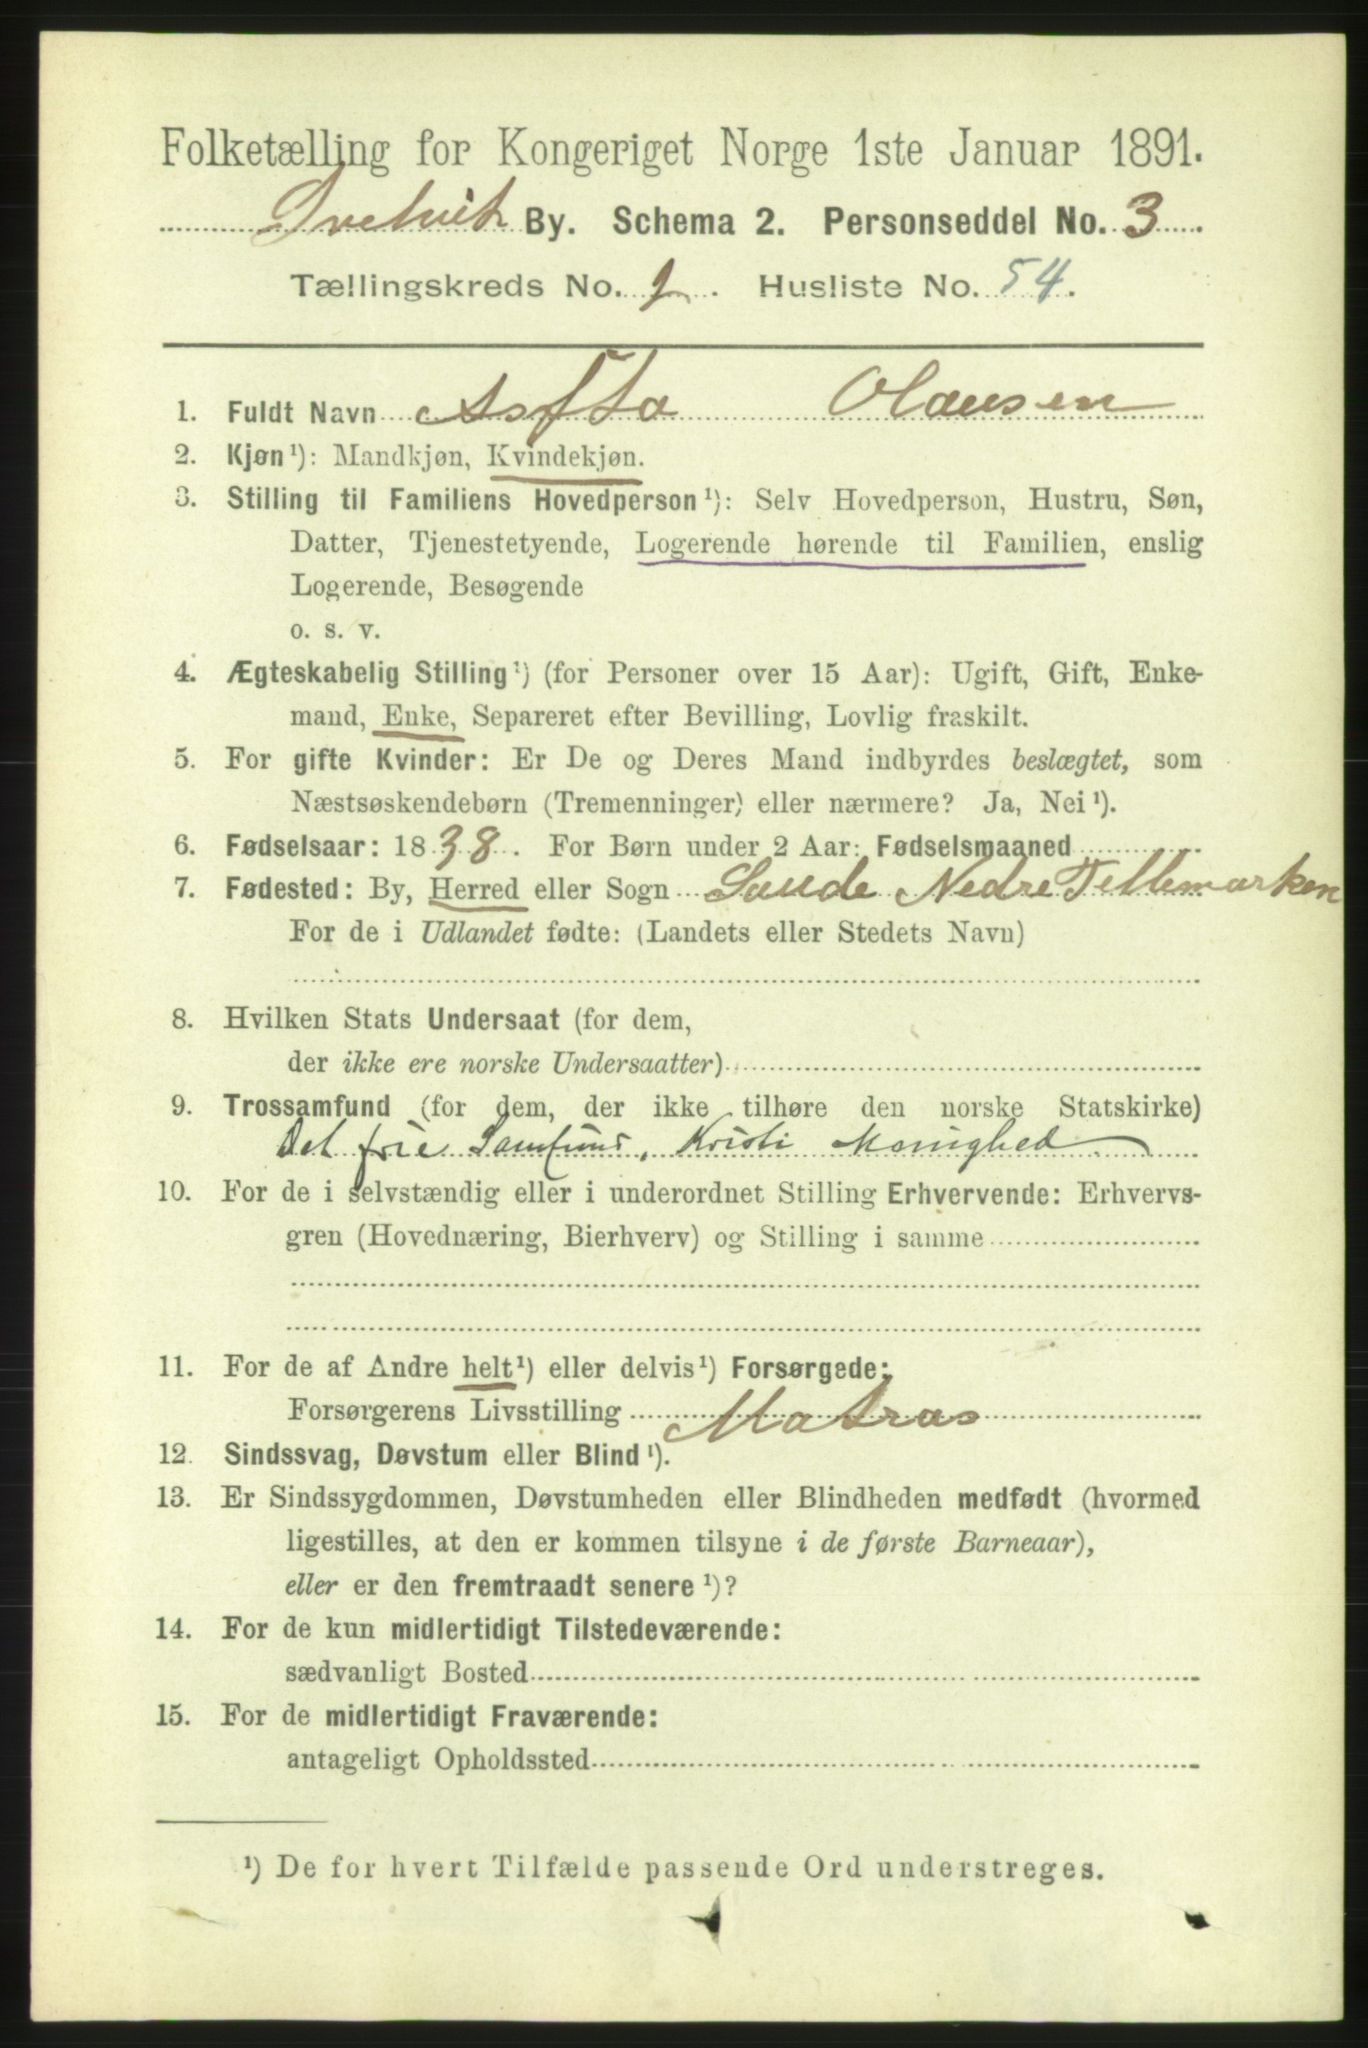 Folketælling for Kongeriget Norge 1ste Januar 1891.
Svelvik By. Schema 2. Personseddel No. 3
Tællingskreds No. 2. Husliste No. 54.
1. Fuldt Navn Olausen
2. Kjøn¹): Mandkjøn, Kvindekjøn.
3. Stilling til Familiens Hovedperson¹): Selv Hovedperson, Hustru, Søn,
Datter, Tjenestetyende, Logerende hørende til Familien, enslig
Logerende, Besøgende
o. s. v.
4. Ægteskabelig Stilling¹) (for Personer over 15 Aar): Ugift, Gift, Enke-
mand, Enke, Separeret efter Bevilling, Lovlig fraskilt.
5. For gifte Kvinder: Er De og Deres Mand indbyrdes beslægtet, som
Næstsøskendebørn (Tremenninger) eller nærmere? Ja, Nei¹).
6. Fødselsaar: 1838. For Børn under 2 Aar: Fødselsmaaned
7. Fødested: By, Herred eller Sogn Saude Nedre Tellemarken
For de i Udlandet fødte: (Landets eller Stedets Navn)
8. Hvilken Stats Undersaat (for dem,
der ikke ere norske Undersaatter)
9. Trossamfund (for dem, der ikke tilhøre den norske Statskirke)
Det frie Samfund, Kristi Menighed
10. For de i selvstændig eller i underordnet Stilling Erhvervende: Erhvervs-
gren (Hovednæring, Bierhverv) og Stilling i samme
11. For de af Andre helt¹) eller delvis¹) Forsørgede:
Forsørgerens Livsstilling Matros
12. Sindssvag, Døvstum eller Blind¹).
13. Er Sindssygdommen, Døvstumheden eller Blindheden medfødt (hvormed
ligestilles, at den er kommen tilsyne i de første Barneaar),
eller er den fremtraadt senere¹)?
14. For de kun midlertidigt Tilstedeværende:
sædvanligt Bosted
15. For de midlertidigt Fraværende:
antageligt Opholdssted
¹) De for hvert Tilfælde passende Ord understreges.